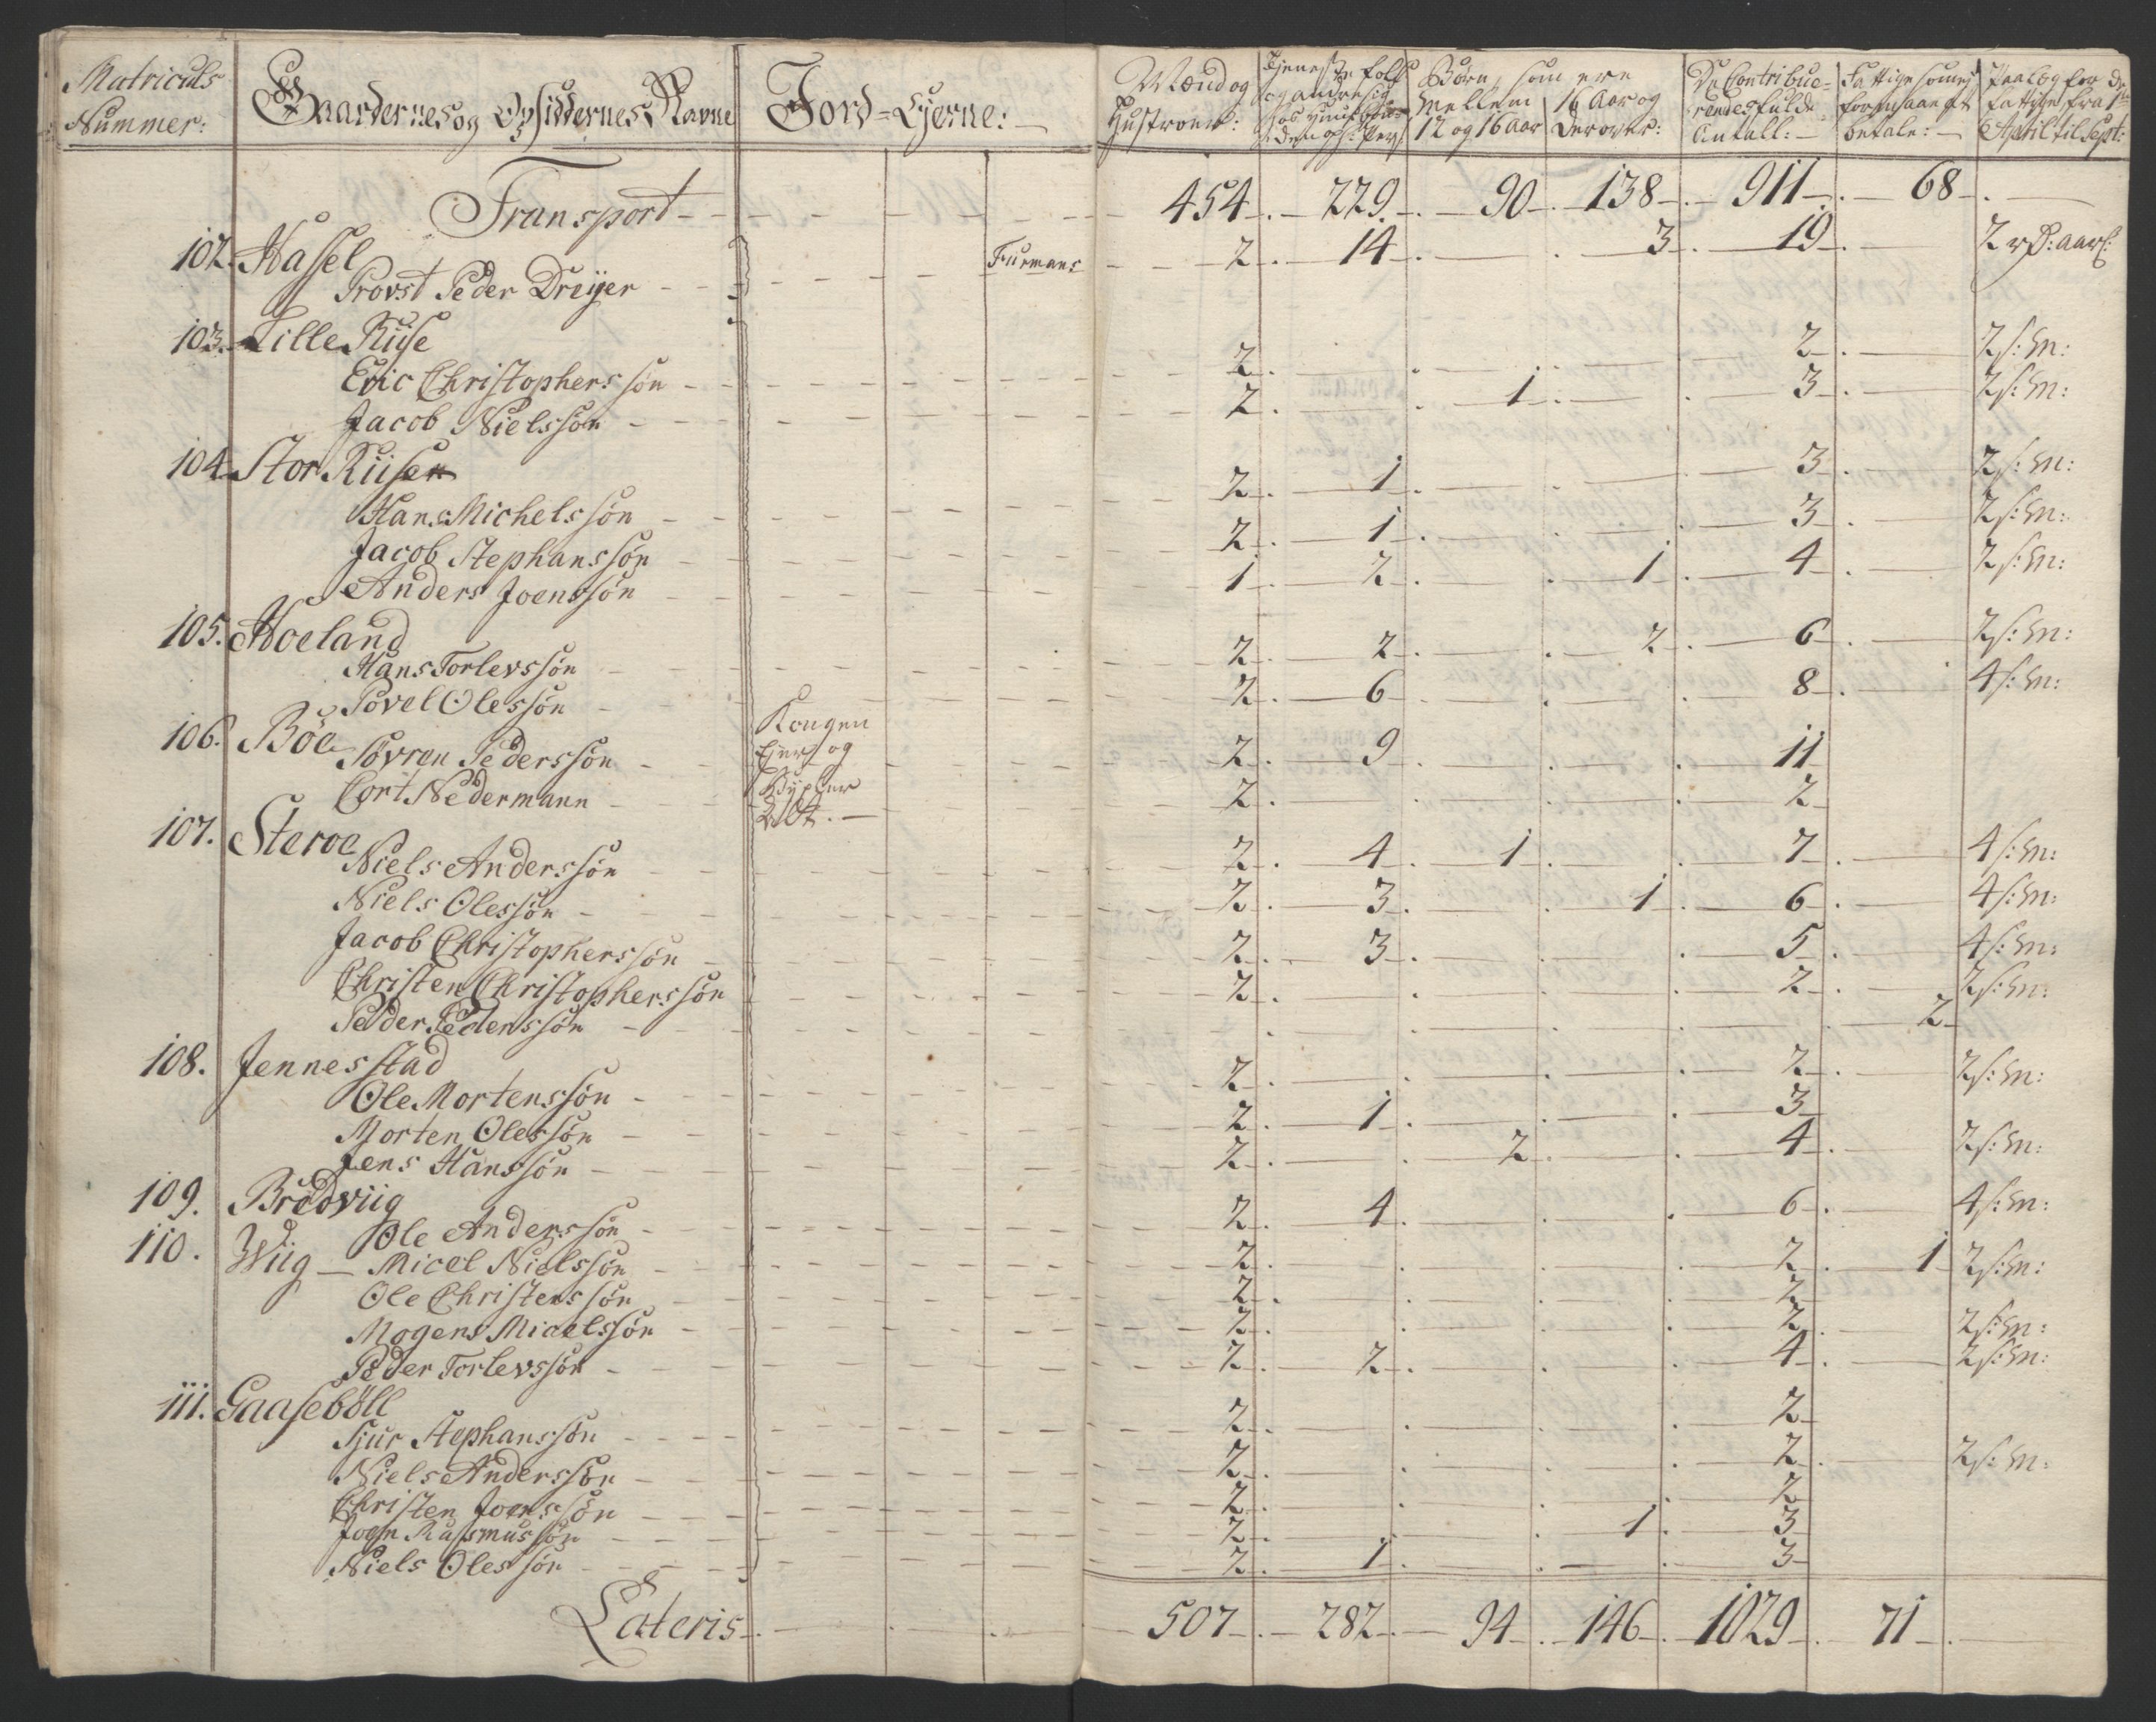 Matriculs Nummer: Gaardernes og Opsiddernes Navne Jord-Ejerne: Mænd og Hustroer: Tieneste folk og andre sig Børn mellem 12 og 16 Aar som ere 16 Aar og derover: De Contribue-rendes fulde Antall: Fattige som ej formaar at betale: Paalæg for de fattige fra 1te April til Sept:
Transport 454 229 90 138 911 68
102. Hassel Furmans 2 14 3 19 2 rd: aarl:
Provst Peder Dreyer
103. Lille Riise
Eric Christophersøn 2 2 2 s: m:
Jacob Nielssøn 2 1 3 2 s: m:
104. Stor Riisen
Hans Michelssøn 2 1 3 2 s: m:
Jacob Stephanssøn 2 1 3 2 s: m:
Anders Joenssøn 1 2 1 4 2 s: m:
105. Hoeland
Hans Torlevssøn 2 2 2 6 2 s: m:
Povel Olessøn 2 6 8 4 s: m:
106. Böe Kongen Ejer og
Søvren Pederssøn 2 9 11
Cort Nedermann 2 2
107. Steroe
Niels Anderssøn 2 4 1 7 4 s: m:
Niels Olessøn 2 3 1 6 4 s: m:
Jacob Christopherssøn 2 3 5 4 s: m:
Christen Christopherssøn 2 2 2 s: m:
Peder Pederssøn 2
108. Jennesstad
Ole Mortenssøn 2 2 2 s: m:
Morten Olessøn 2 1 3
Jens Hanssøn 2 2 4 2 s: m:
109. Bredviig
Ole Anderssøn 2 4 6 4 s: m:
110. Wiig Micel Nielssøn 2 2 1 2 s: m:
Ole Christenssøn 2 2
Mogens Micelssøn 2 2 2 s: m:
Peder Torlevssøn 2 2 4 2 s: m:
111. Gaasebøll
Sjur Stephanssøn 2 2
Niels Anderssøn 2 2 2 s: m:
Christen Joenssøn 2 2
Joen Rasmussøn 2 1 3
Niels Olessøn 2 1 3
Lateris 507 282 94 146 1029 71